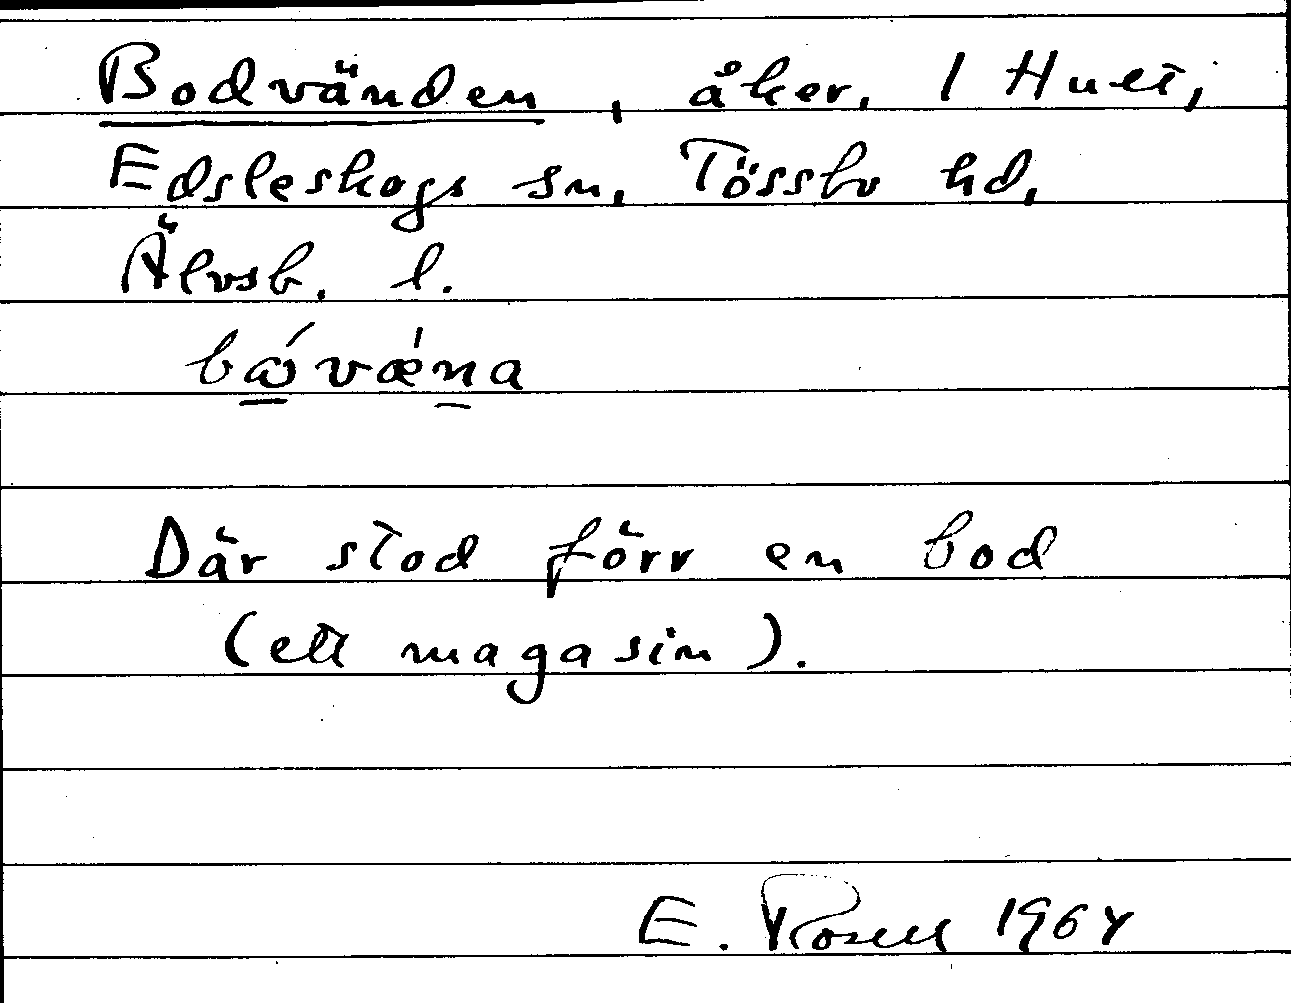 Bodvänden, åker. 1 Hult,
Edsleskogs sn, Tössbo hd,
Älvsb. l.
bǻvǽna
Där stod förr en bod
(ett magasin).
E. Rosell 1964